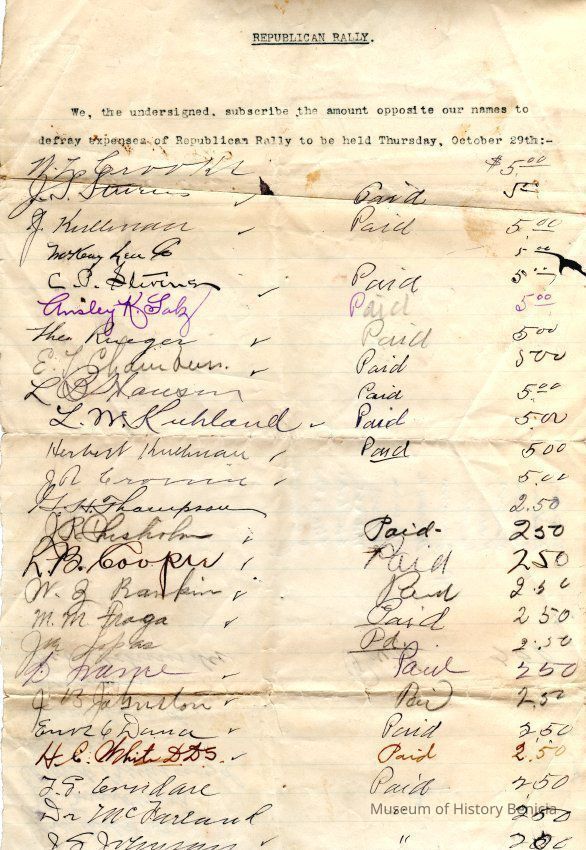 REPUBLICAN RALLY.
We, the undersigned, subscribe the amount opposite our names to
defray expenses of Republican Rally to be held Thursday, October 29th:-
$ 5.00
J. S. Stevens Paid 5.00
J. Kullman Paid 5.00
5.00
C. P. Stevens Paid 5.00
Ansley K. Salz Paid 5.00
Theo Krueger Paid 5.00
Paid 5.00
L. B. Hanson Paid 5.00
L. W. Kuhland Paid 5.00
Herbert Kullman Paid 5.00
J. R. Cronin 5.00
G. H. Thompson 2.50
J. R. Chisholm Paid- 2.50
L. B. Cooper Paid 2.50
W. J. Rankin Paid 2.50
M. M. Fraga Paid 2.50
Pd. 2.50
Paid 2.50
J B Johnston Pd 2.50
Paid 2.50
H. C. White D.D.S. Paid 2.50
Paid 2.50
Dr McFarland 2.50
J. S. Johnson " 2.50
Museum of History Benicia